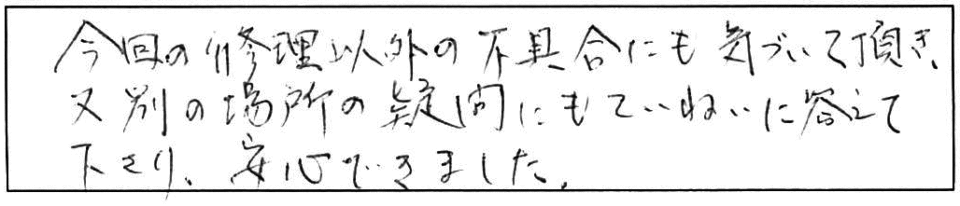 今回の修理以外の不具合にも気づいて頂き、
又別の場所の疑問にもていねいに答えて
下さり、安心できました。